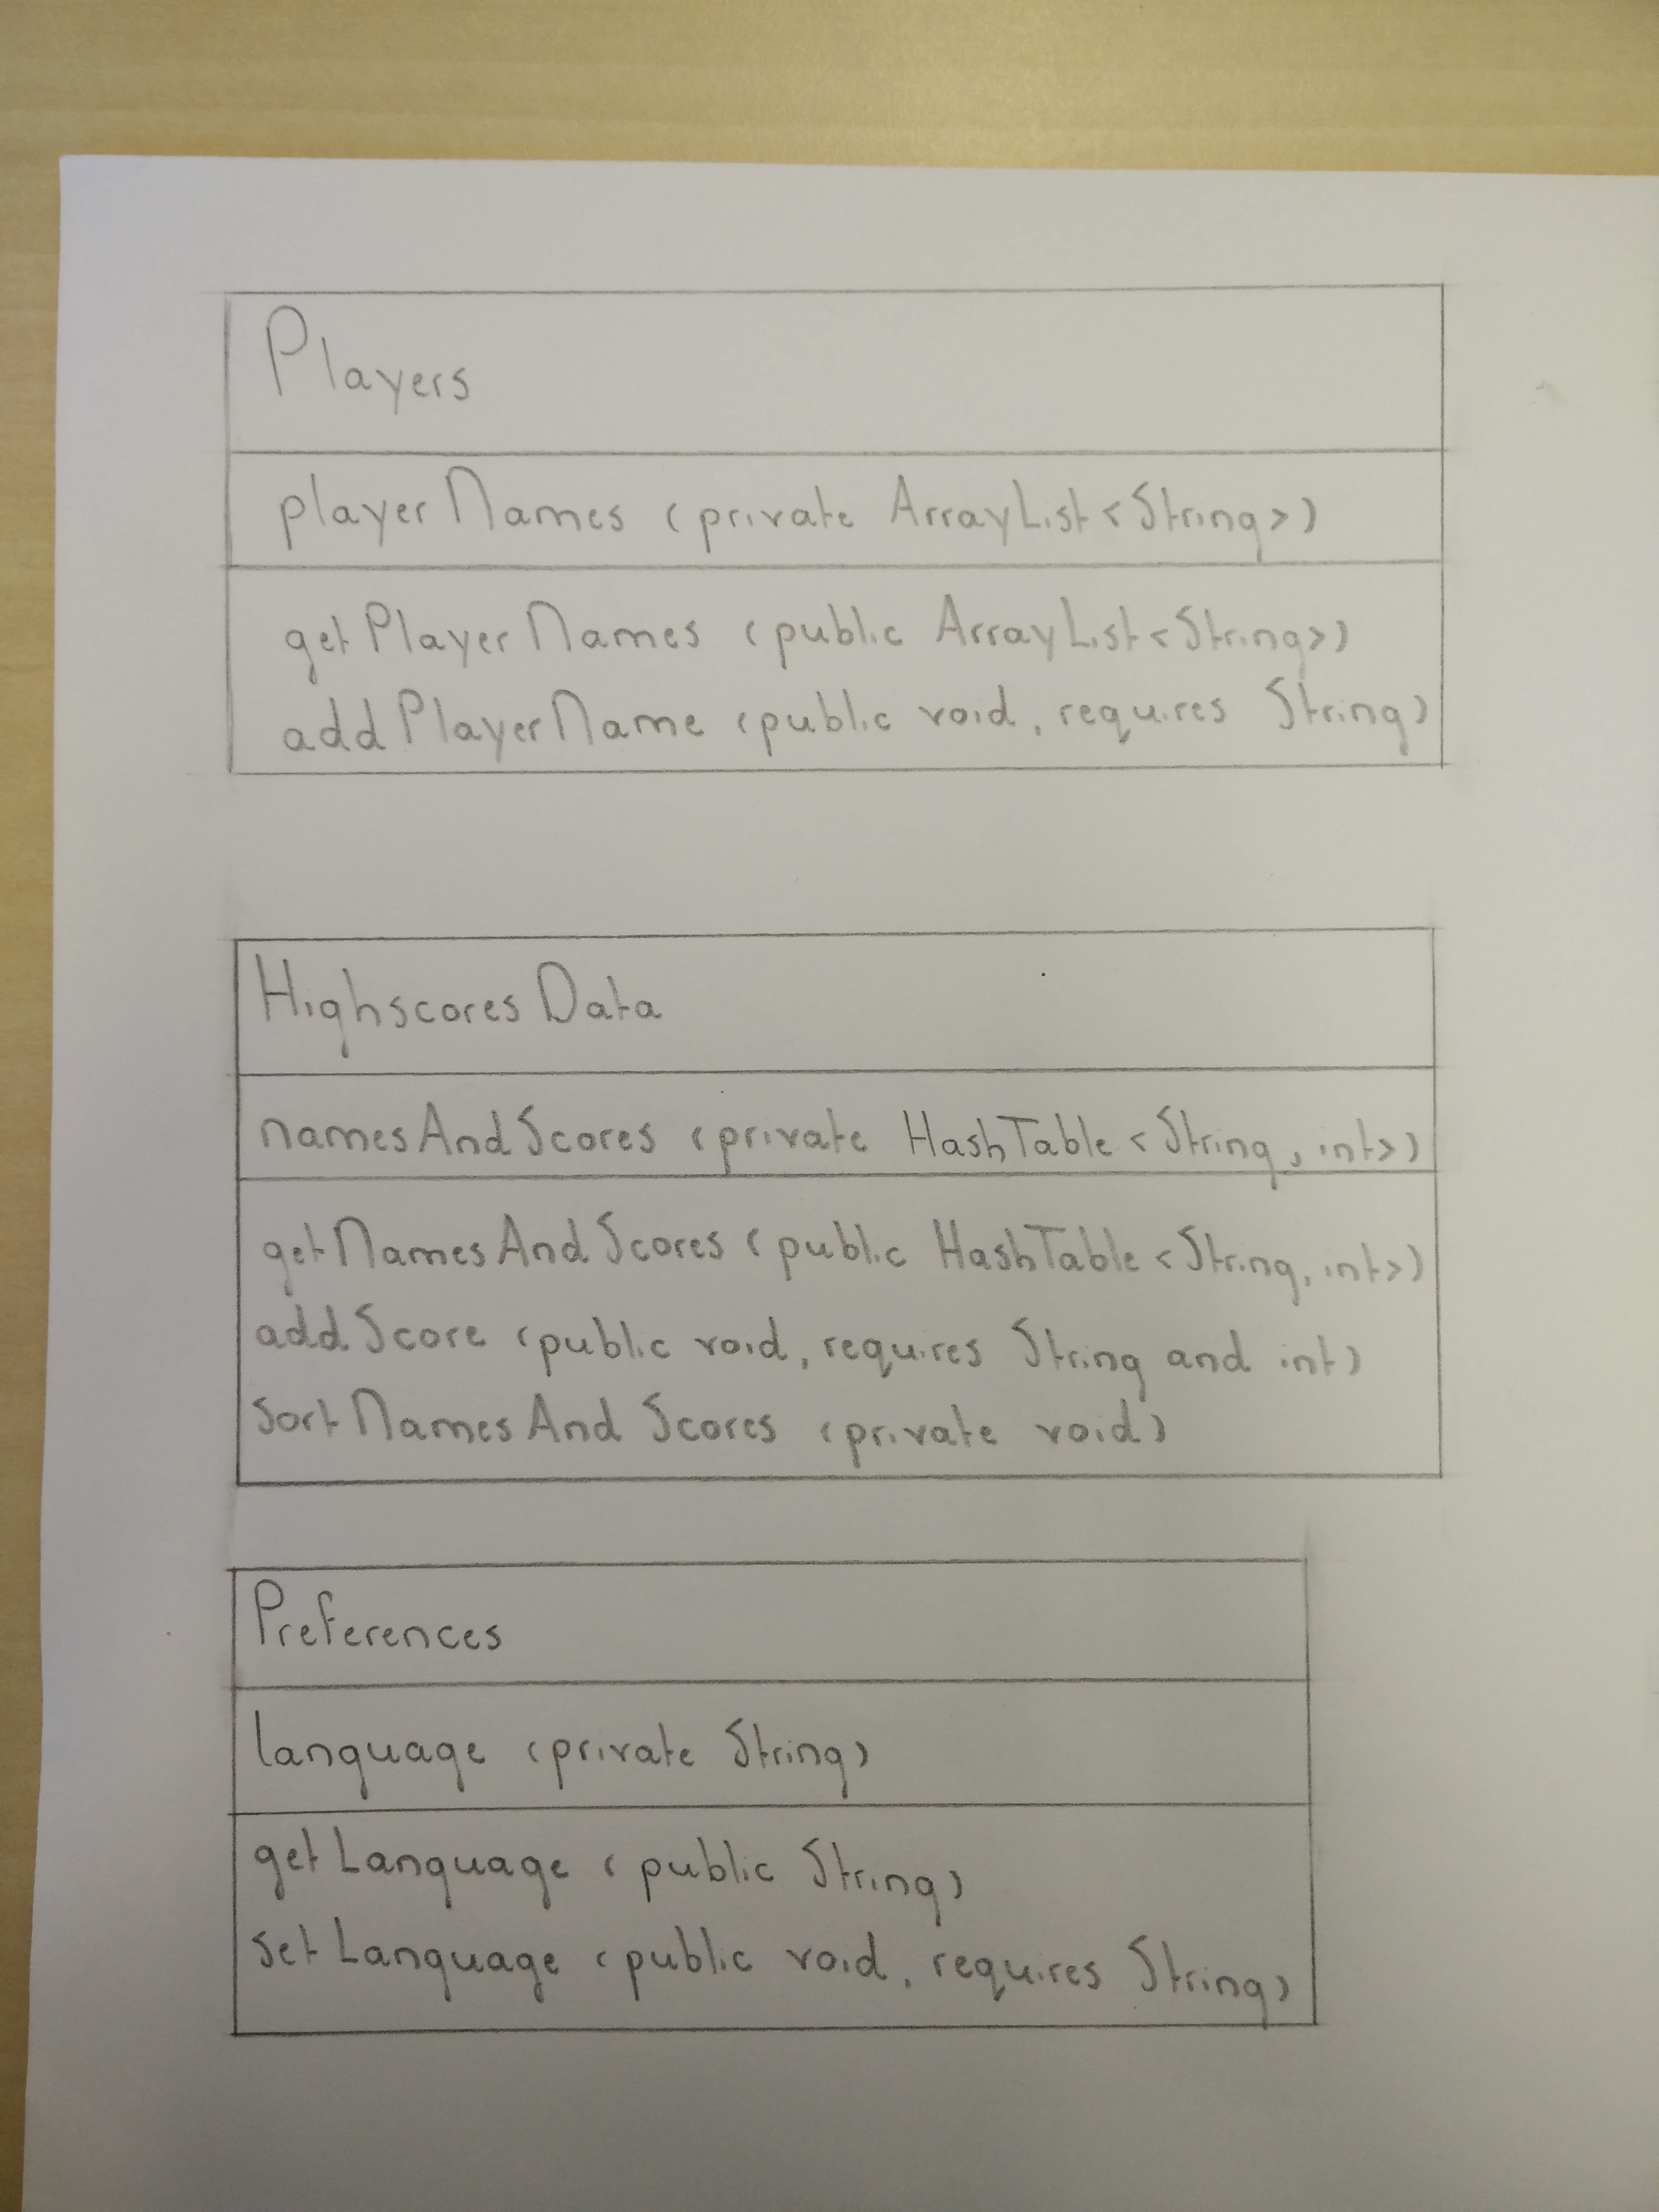 Players
playerNames (private ArrayList<String>)
getPlayerNames (public ArrayList<String>)
addPlayerName (public void, requires String)
HighscoresData
namesAndScores (private HashTable<String, int>)
getNamesAndScores (public HashTable<String, int>)
addScore (public void, requires String and int)
sortNamesAndScores (private void)
Preferences
language (private String)
getLanguage (public String)
setLanguage (public void, requires String)